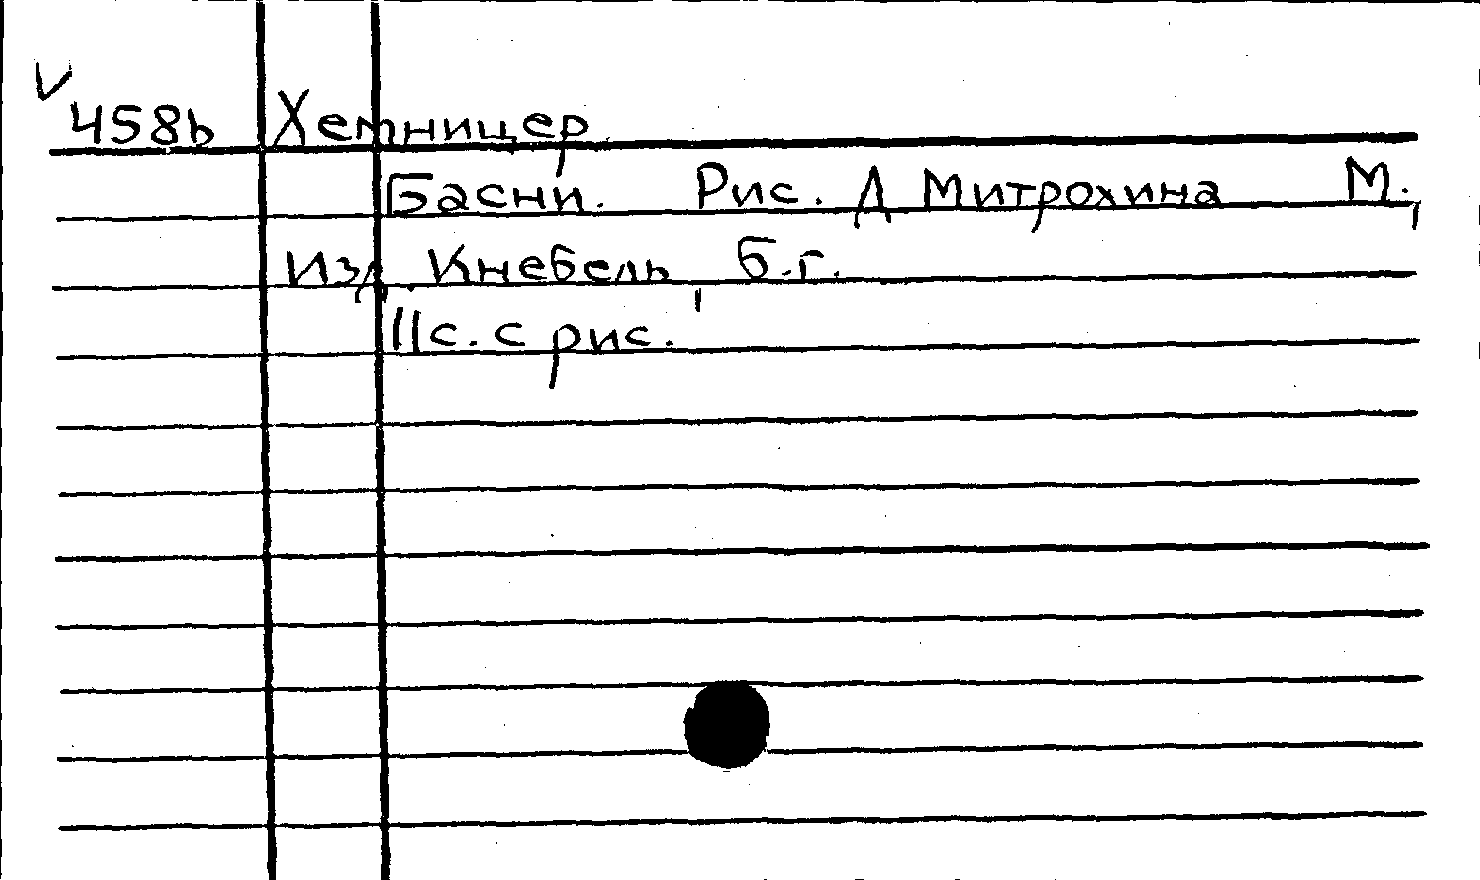 V
458b Хемницер
Басни. Рис. Д Митрохина М.,
Изд. Кнебель, б.г.
11с. с рис.